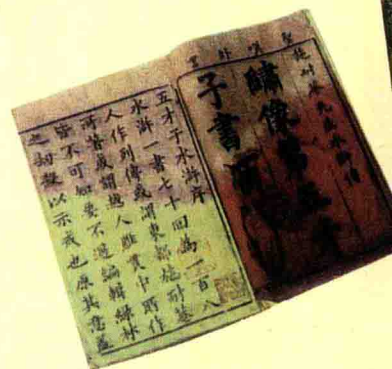 聖嘆外書
施耐菴先生水滸傳
繡像第五才
子書
五才子水滸序
水滸一書七十回為一百八
人作列傳或謂東都施耐菴
所著或謂越人羅貫中所作
皆不可知要不過編輯綠林
之劫殺以示戒也原其意蓋